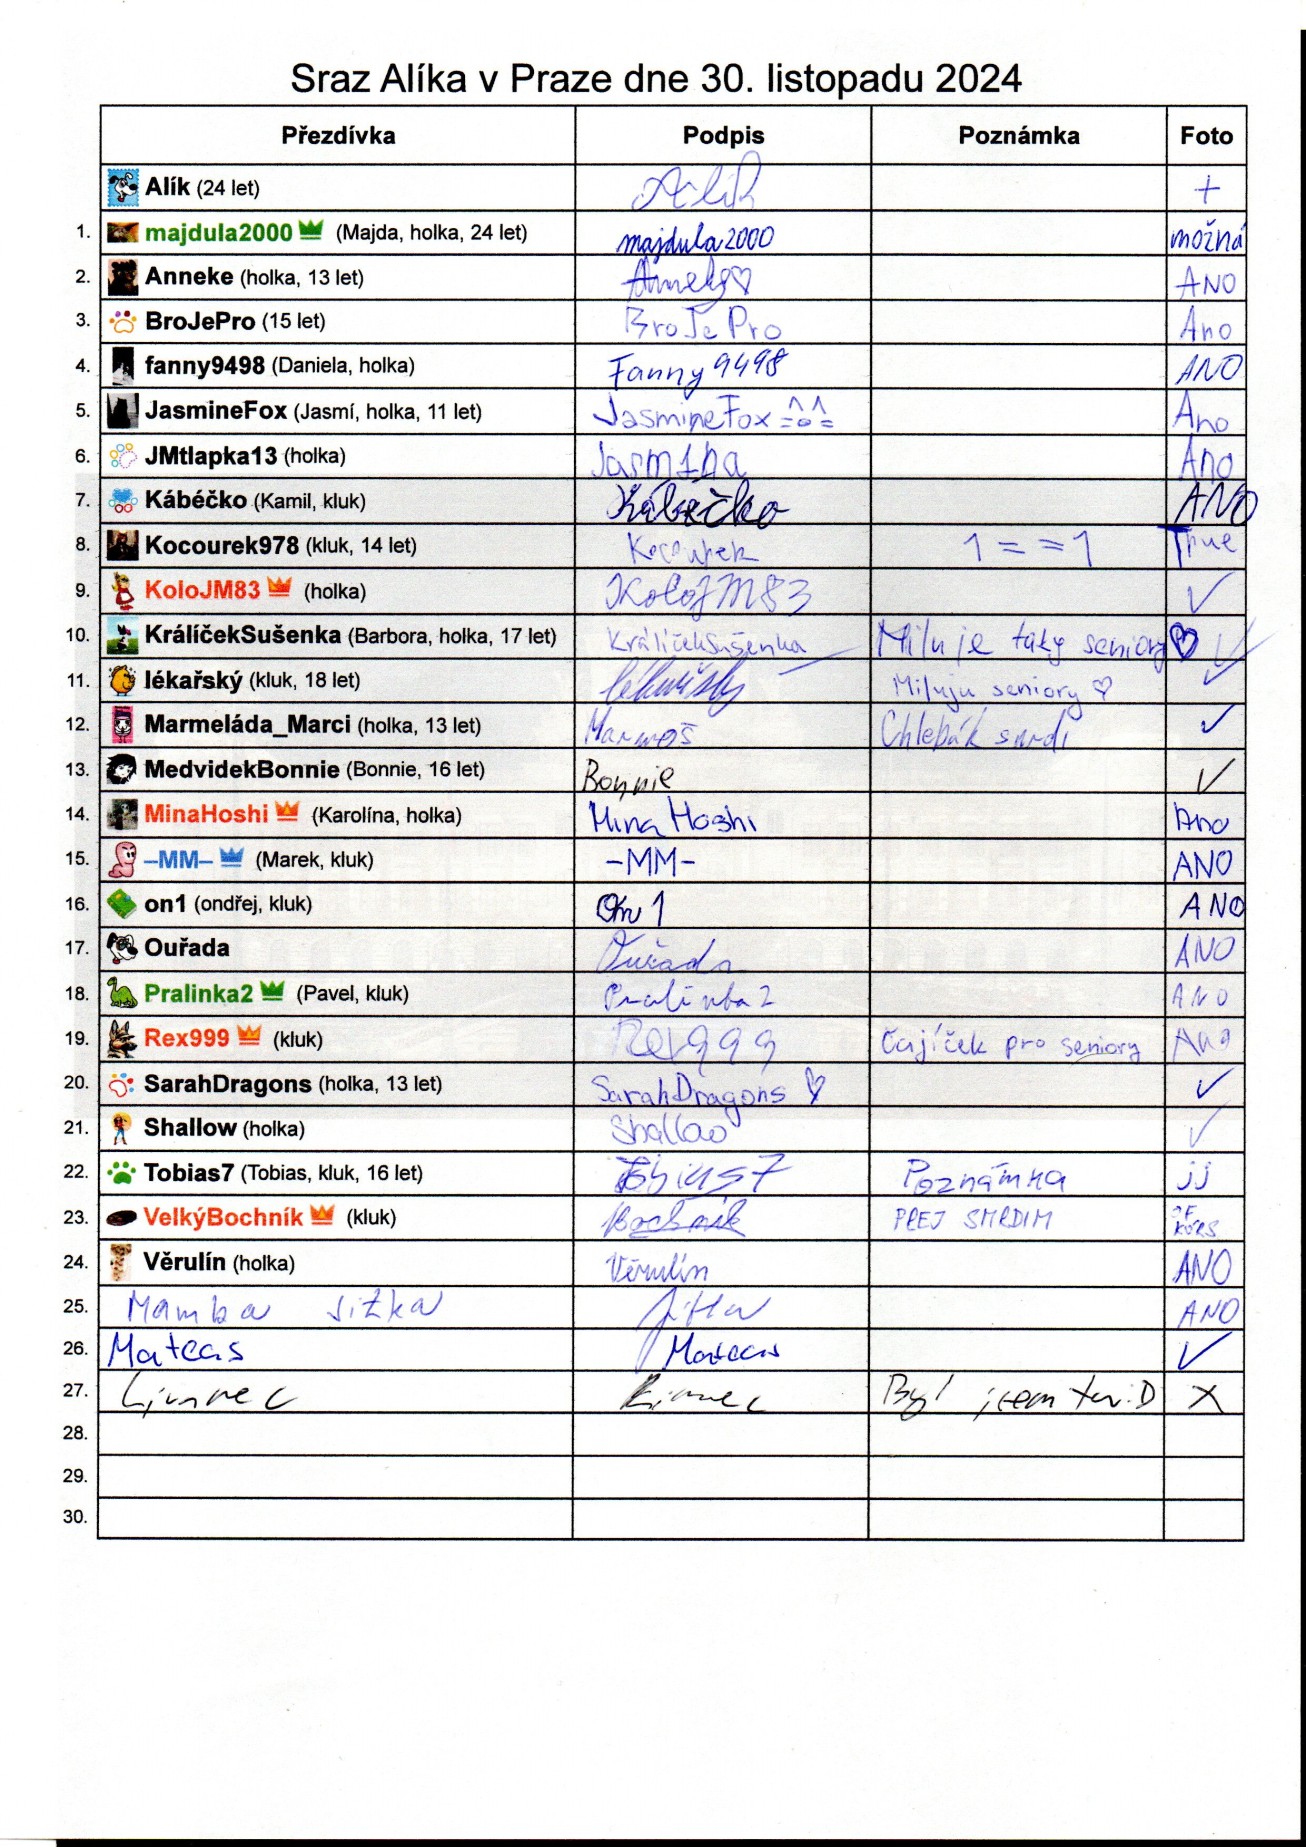 Sraz Alíka v Praze dne 30. listopadu 2024
Přezdívka Podpis Poznámka Foto
Alík (24 let) Alík +
1. majdula2000 (Majda, holka, 24 let) majdula2000 možná
2. Anneke (holka, 13 let) Anneke♡ ANO
3. BroJePro (15 let) BroJePro Ano
4. fanny9498 (Daniela, holka) Fanny9498 ANO
5. JasmineFox (Jasmí, holka, 11 let) JasmineFox Ano
6. JMtlapka13 (holka) Ano
7. Kábéčko (Kamil, kluk) Kábéčko ANO
8. Kocourek978 (kluk, 14 let) Kocourek 1 = = 1 True
9. KoloJM83 (holka) KoloJM83 ✓
10. KrálíčekSušenka (Barbora, holka, 17 let) KrálíčekSušenka Miluje taky seniory♡ ✓
11. lékařský (kluk, 18 let) lékařský Miluju seniory ♡ ✓
12. Marmeláda_Marci (holka, 13 let) Marmoš Chlebák smrdí ✓
13. MedvidekBonnie (Bonnie, 16 let) Bonnie ✓
14. MinaHoshi (Karolína, holka) Mina Hoshi Ano
15. –MM– (Marek, kluk) –MM– ANO
16. on1 (ondřej, kluk) On1 ANO
17. Ouřada Ouřada ANO
18. Pralinka2 (Pavel, kluk) Pralinka2 ANO
19. Rex999 (kluk) Rex999 čajíček pro seniory Ano
20. SarahDragons (holka, 13 let) SarahDragons ♡ ✓
21. Shallow (holka) Shallow ✓
22. Tobias7 (Tobias, kluk, 16 let) Tobias7 Poznámka jj
23. VelkýBochník (kluk) Bochník PREJ SMRDIM OF KORS
24. Věrulín (holka) Věrulín ANO
25. Mamba Jitka Jitka ANO
26. Mateas Mateas ✓
27. Byl jsem tu :D X
28.
29.
30.